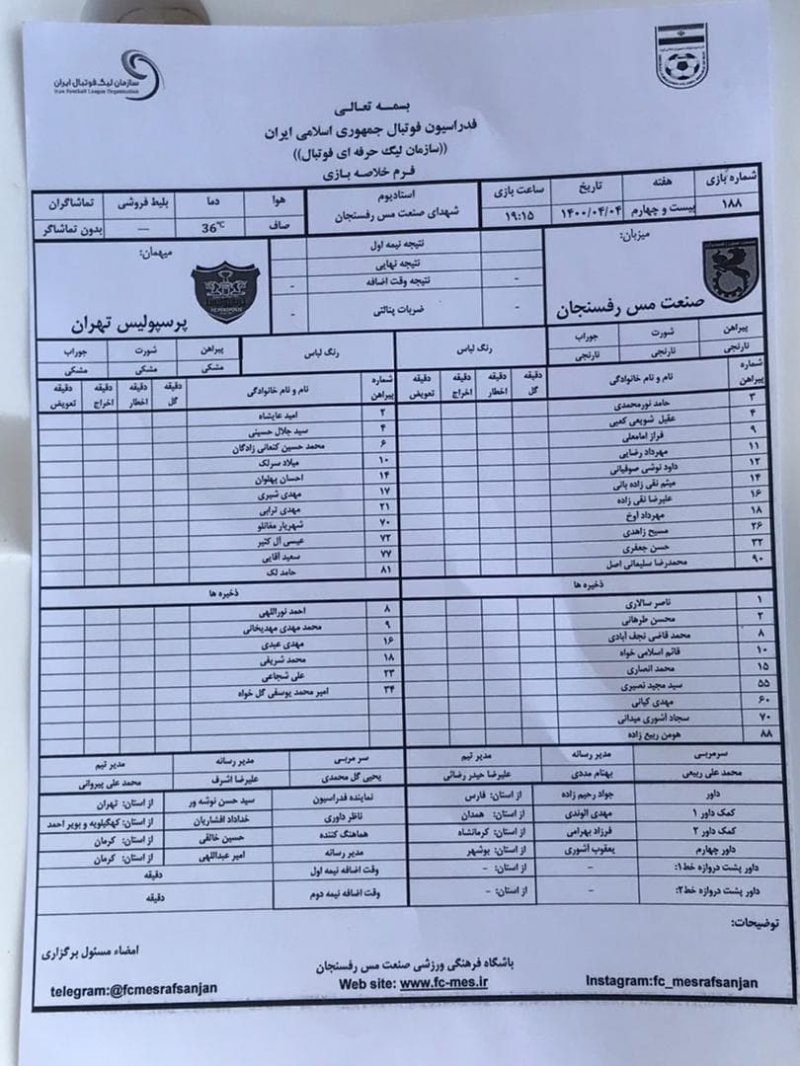 سازمان لیگ فوتبال ایران
Iran Football League Organization
بسمه تعالی
فدراسیون فوتبال جمهوری اسلامی ایران
((سازمان لیگ حرفه ای فوتبال))
فرم خلاصه بازی
شماره بازی هفته تاریخ ساعت بازی استادیوم هوا دما بلیط فروشی تماشاگران
۱۸۸ بیست و چهارم ۱۴۰۰/۰۴/۰۴ ۱۹:۱۵ شهدای صنعت مس رفسنجان صاف 36℃ --- بدون تماشاگر
میزبان: نتیجه نیمه اول میهمان:
نتیجه نهایی
- نتیجه وقت اضافه -
- ضربات پنالتی -
صنعت مس رفسنجان پرسپولیس تهران
پیراهن شورت جوراب رنگ لباس رنگ لباس پیراهن شورت جوراب
نارنجی نارنجی نارنجی مشکی مشکی مشکی
شماره پیراهن نام و نام خانوادگی دقیقه گل دقیقه اخطار دقیقه اخراج دقیقه تعویض شماره پیراهن نام و نام خانوادگی دقیقه گل دقیقه اخطار دقیقه اخراج دقیقه تعویض
۳ حامد نورمحمدی ۲ امید عایشاه
۴ عقیل شویعی کعبی ۴ سید جلال حسینی
۹ فراز امامعلی ۶ محمد حسین کنعانی زادگان
۱۱ مهرداد رضایی ۱۰ میلاد سرلک
۱۲ داود نوشی صوفیانی ۱۴ احسان پهلوان
۱۴ میثم نقی زاده بانی ۱۷ مهدی شیری
۱۶ علیرضا نقی زاده ۲۱ مهدی ترابی
۱۸ مهرداد آوخ ۷۰ شهریار مغانلو
۲۶ مسیح زاهدی ۷۲ عیسی آل کثیر
۳۲ حسن جعفری ۷۷ سعید آقایی
۹۰ محمدرضا سلیمانی اصل ۸۱ حامد لک
ذخیره ها ذخیره ها
۱ ناصر سالاری ۸ احمد نوراللهی
۲ محسن طرهانی ۹ محمد مهدی مهدیخانی
۸ محمد قاضی نجف آبادی ۱۶ مهدی عبدی
۱۰ قائم اسلامی خواه ۱۸ محمد شریفی
۱۵ محمد انصاری ۲۳ علی شجاعی
۵۵ سید مجید نصیری ۳۴ امیر محمد یوسفی گل خواه
۶۰ مهدی کیانی
۷۰ سجاد آشوری میدانی
۸۸ هومن ربیع زاده
سرمربی مدیر رسانه مدیر تیم سر مربی مدیر رسانه مدیر تیم
محمد علی ربیعی بهنام مددی علیرضا حیدر رضائی یحیی گل محمدی علیرضا اشرف محمد علی پیروانی
داور جواد رحیم زاده از استان: فارس نماینده فدراسیون سید حسن نوشه ور از استان: تهران
کمک داور ۱ مهدی الوندی از استان: همدان ناظر داوری خداداد افشاریان از استان: کهگیلویه و بویر احمد
کمک داور ۲ فرزاد بهرامی از استان: کرمانشاه هماهنگ کننده حسین خالقی از استان: کرمان
داور چهارم یعقوب آشوری از استان: بوشهر مدیر رسانه امیر عبداللهی از استان: کرمان
داور پشت دروازه خط۱: - از استان: - وقت اضافه نیمه اول دقیقه
داور پشت دروازه خط۲: - از استان: - وقت اضافه نیمه دوم دقیقه
توضیحات:
امضاء مسئول برگزاری
باشگاه فرهنگی ورزشی صنعت مس رفسنجان
telegram:@fcmesrafsanjan Web site: www.fc-mes.ir Instagram:fc_mesrafsanjan